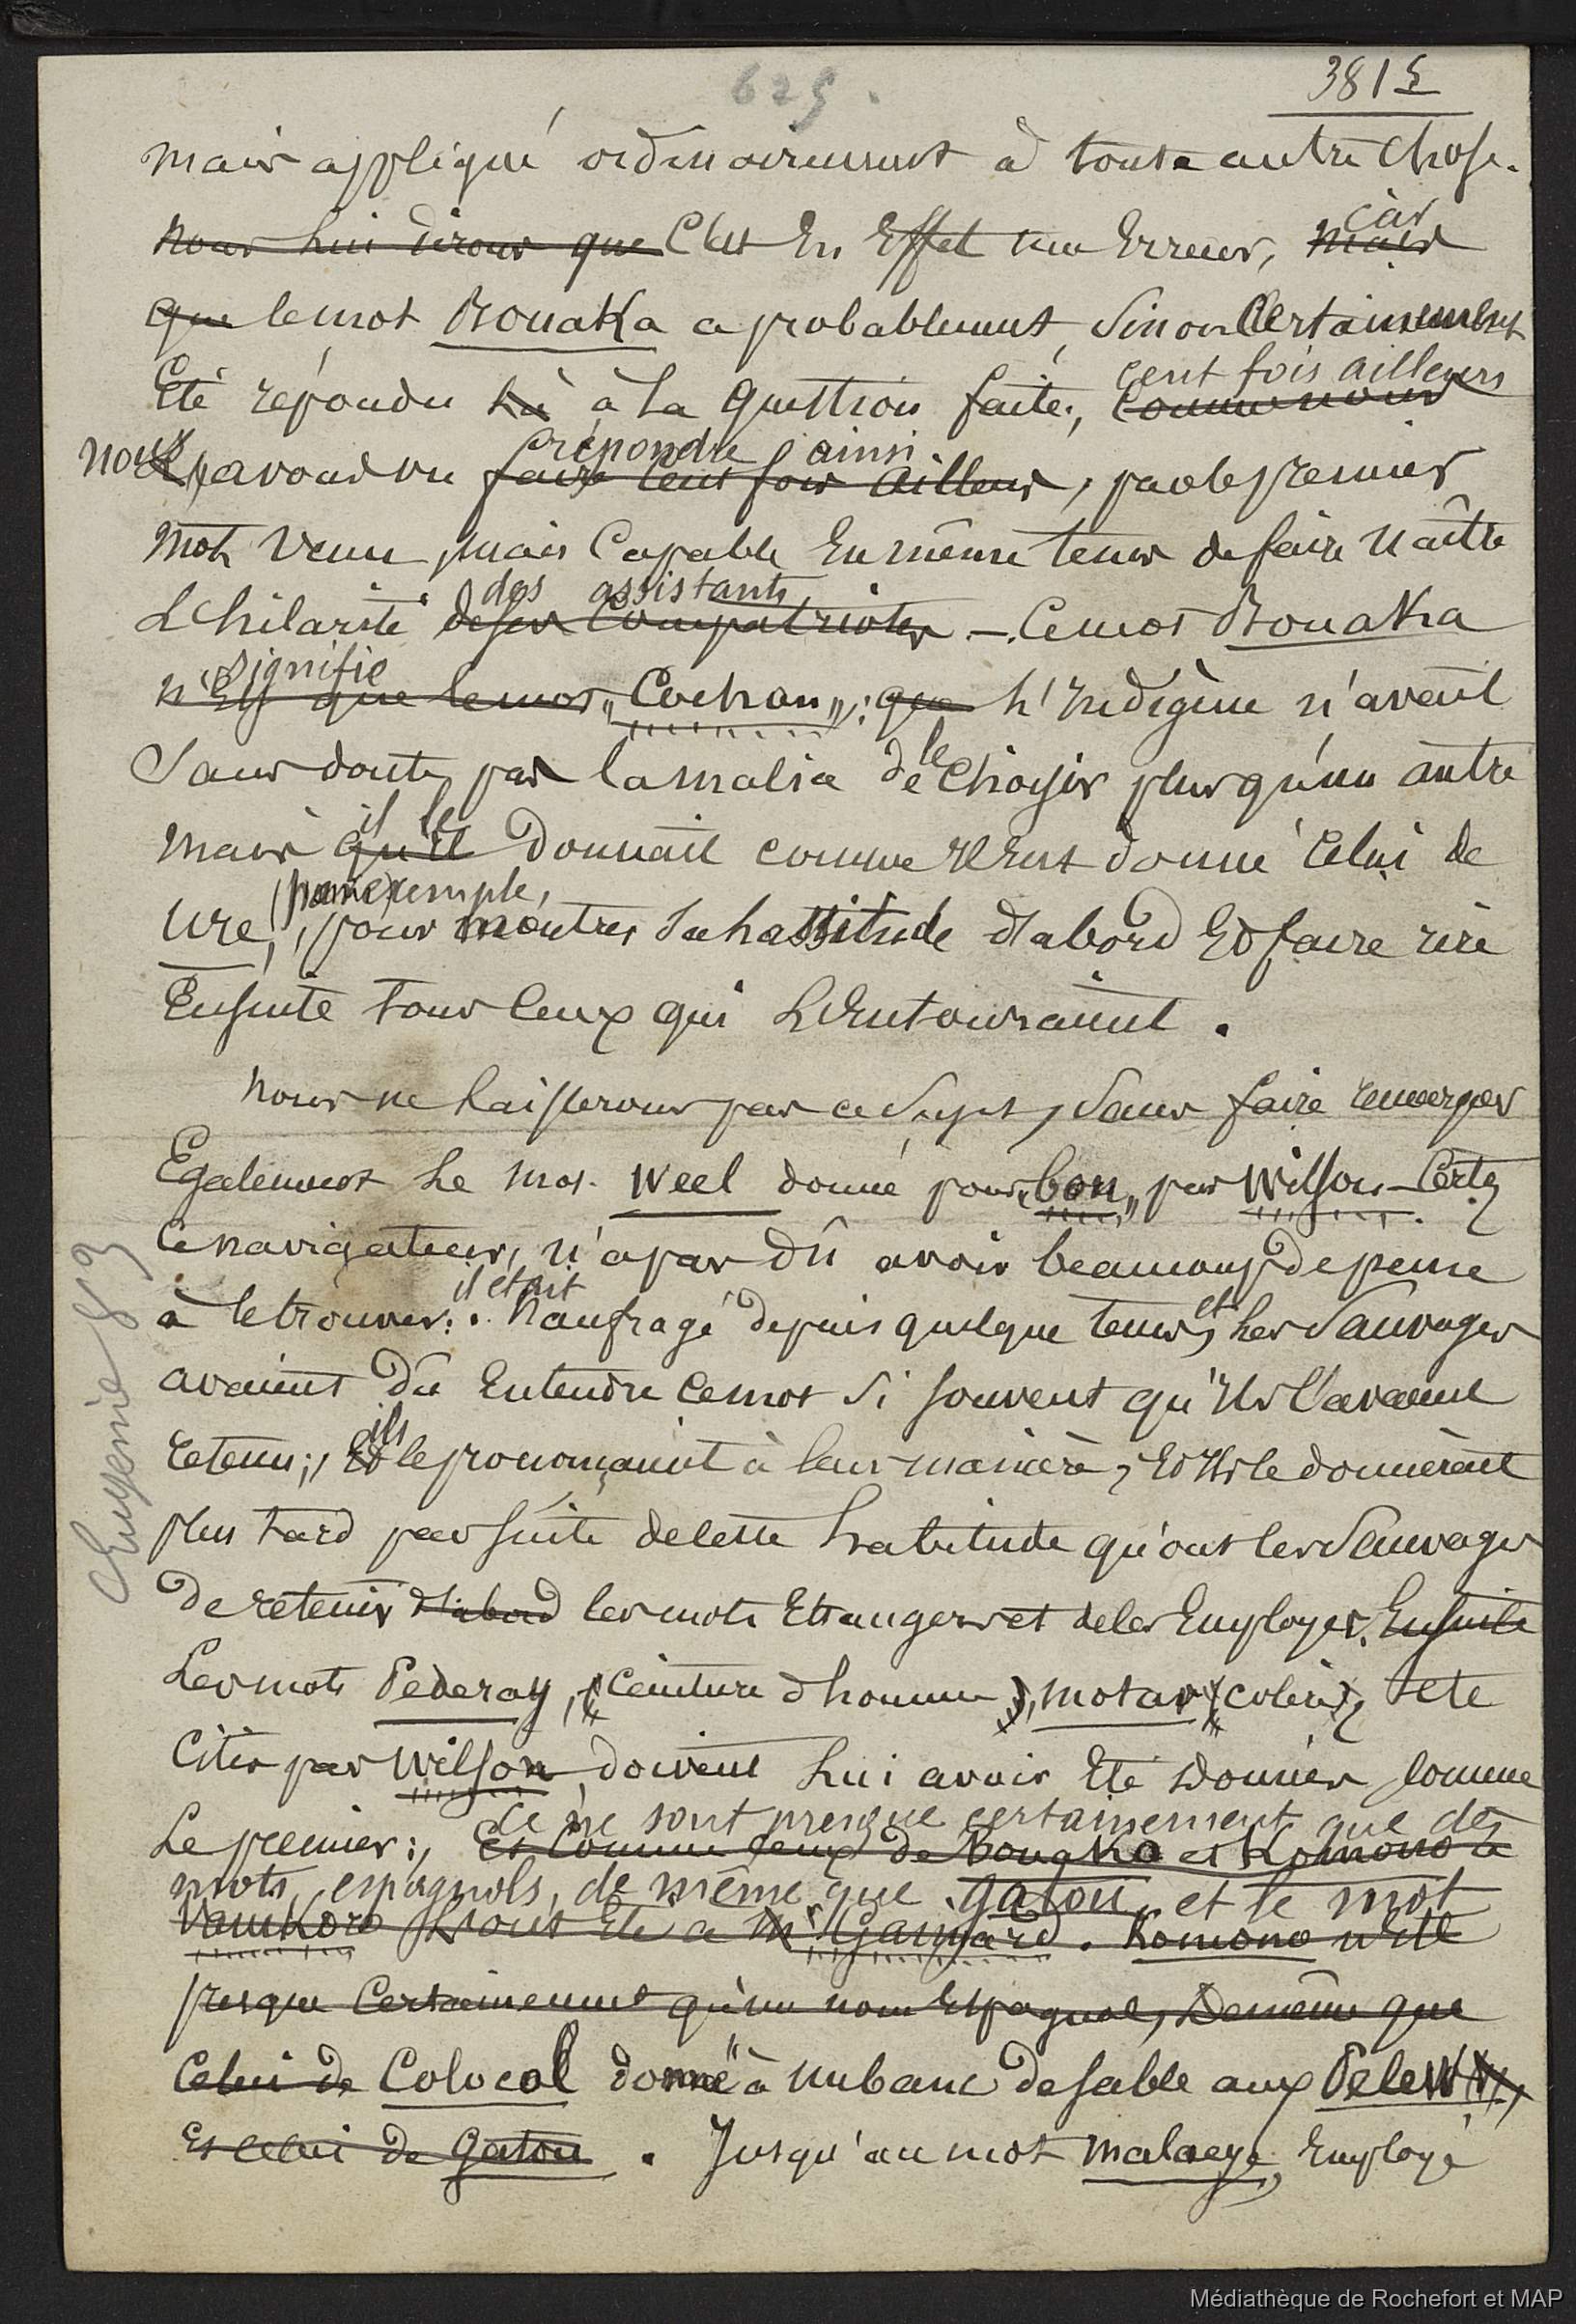 625.
3815
mais appliqué ordinairement à toute autre chose.
nous lui dirons que C'est En Effet une Erreur, mais car
que le mot Bouaka a probablement, sinon Certainement
Eté répondu là à la Question faite, comme nous cent fois ailleurs
nous avons vu faire cent fois ailleurs répondre ainsi, par le premier
mot venu, mais Capable En même tems de faire Naître
L'hilarité de ses Compatriotes des assistants. — Ce mot Bouaka
n'Est que le mot signifie "Cochon"; que L'Indigène n'avait
Sans doute pas la malice de le Choisir plus qu'un autre
mais qu'il il le Donnait comme il Eut donné Celui de
Ure, (par exemple, pour montrer sa lassitude d'abord Et faire rire
Ensuite tous Ceux qui L'Entouraient.
Nous ne Laisserons pas ce Sujet, Sans faire remarquer
Egalement Le mot Weel donné pour "bon" par Wilson — Certes
Ce navigateur, n'a pas dû avoir beaucoup de peine
à le trouver: il était Naufragé depuis quelque tems, et Les Sauvages
avaient Dû Entendre Ce mot Si souvent qu'ils l'avaient
retenu; Et ils le prononçaient à leur manière, Et ils le donnèrent
plus tard par suite de Cette habitude qu'ont les Sauvages
De retenir d'abord les mots Etrangers et de les Employer Ensuite
Les mots Pederay, (Ceinture d'homme), motav (colère), &te
Cités par Wilson, doivent Lui avoir Eté Donnés Comme
Le premier: Et Comme Ceux de Bougka et Komono à
Ce ne sont presque certainement que des
mots espagnols, de même que gatou, et le mot
Vanikoro L'ont Eté a Mr Gaimard. Komono n'Est
presque Certainement qu'un nom Espagnol, De même que
Celui de Colocol donné à un banc de sable aux Pelew,
Et celui de Gatou. Jusqu'au mot malaeye, Employé
Eugenie 83
Médiathèque de Rochefort et MAP